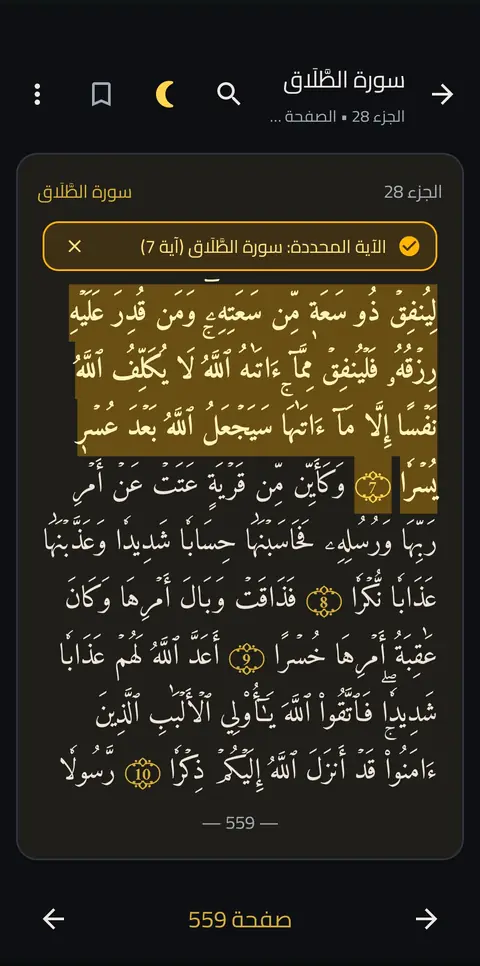 سورة الطَّلَاق
الجزء 28 • الصفحة ...
الجزء 28
سورة الطَّلَاق
الآية المحددة: سورة الطَّلَاق (آية 7)
لِيُنفِقۡ ذُو سَعَةٖ مِّن سَعَتِهِۦۖ وَمَن قُدِرَ عَلَيۡهِ
رِزۡقُهُۥ فَلۡيُنفِقۡ مِمَّآ ءَاتَىٰهُ ٱللَّهُۚ لَا يُكَلِّفُ ٱللَّهُ
نَفۡسًا إِلَّا مَآ ءَاتَىٰهَاۚ سَيَجۡعَلُ ٱللَّهُ بَعۡدَ عُسۡرٖ
يُسۡرٗا 7 وَكَأَيِّن مِّن قَرۡيَةٍ عَتَتۡ عَنۡ أَمۡرِ
رَبِّهَا وَرُسُلِهِۦ فَحَاسَبۡنَٰهَا حِسَابٗا شَدِيدٗا وَعَذَّبۡنَٰهَا
عَذَابٗا نُّكۡرٗا 8 فَذَاقَتۡ وَبَالَ أَمۡرِهَا وَكَانَ
عَٰقِبَةُ أَمۡرِهَا خُسۡرًا 9 أَعَدَّ ٱللَّهُ لَهُمۡ عَذَابٗا
شَدِيدٗاۖ فَٱتَّقُواْ ٱللَّهَ يَٰٓأُوْلِي ٱلۡأَلۡبَٰبِ ٱلَّذِينَ
ءَامَنُواْۚ قَدۡ أَنزَلَ ٱللَّهُ إِلَيۡكُمۡ ذِكۡرٗا 10 رَّسُولٗا
— 559 —
صفحة 559